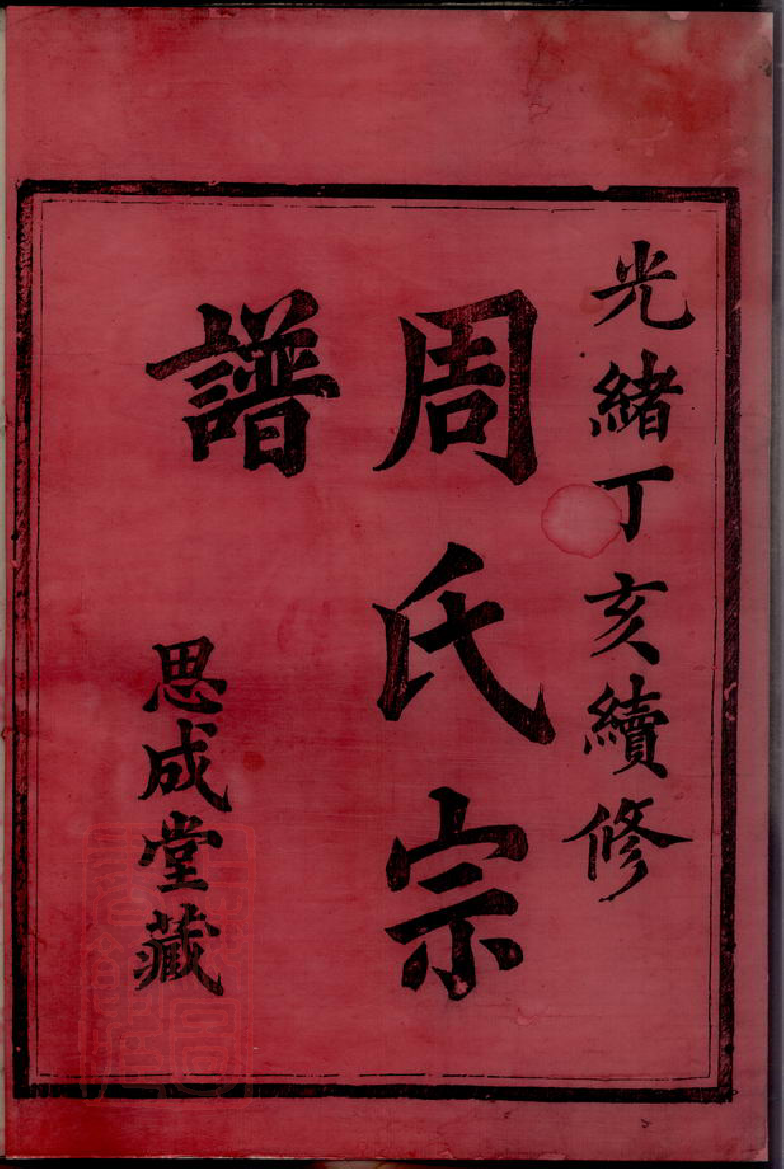 光緒丁亥續修
周氏宗
譜
思成堂藏